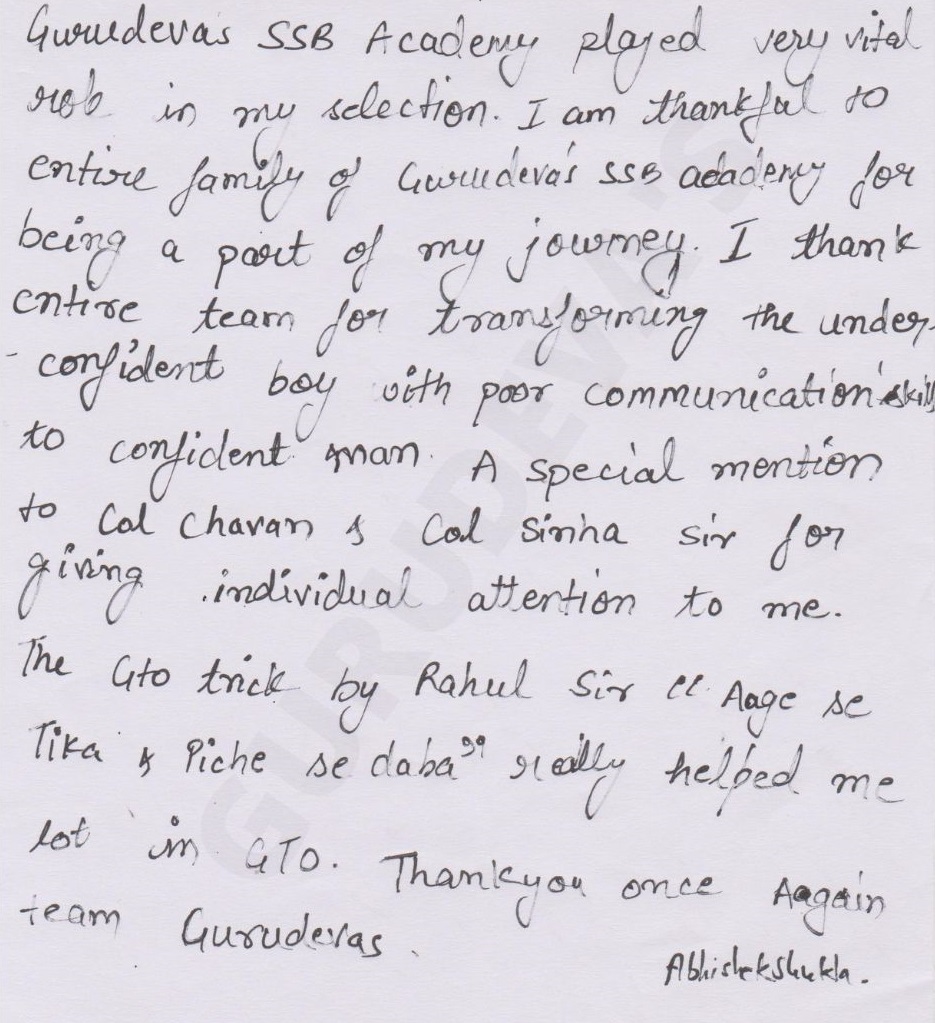 Gurudevas SSB Academy played very vital
role in my selection. I am thankful to
entire family of Gurudeva's SSB academy for
being a part of my journey. I thank
entire team for transforming the under-
- confident boy with poor communication skills
to confident man. A special mention
to Col Chavan & Col Sinha sir for
giving individual attention to me.
The Gto trick by Rahul Sir " Aage se
Tika & Piche se daba" really helped me
lot in GTO. Thankyou once Aagain
team Gurudevas.
Abhishek Shukla.
GURUDEVA'S